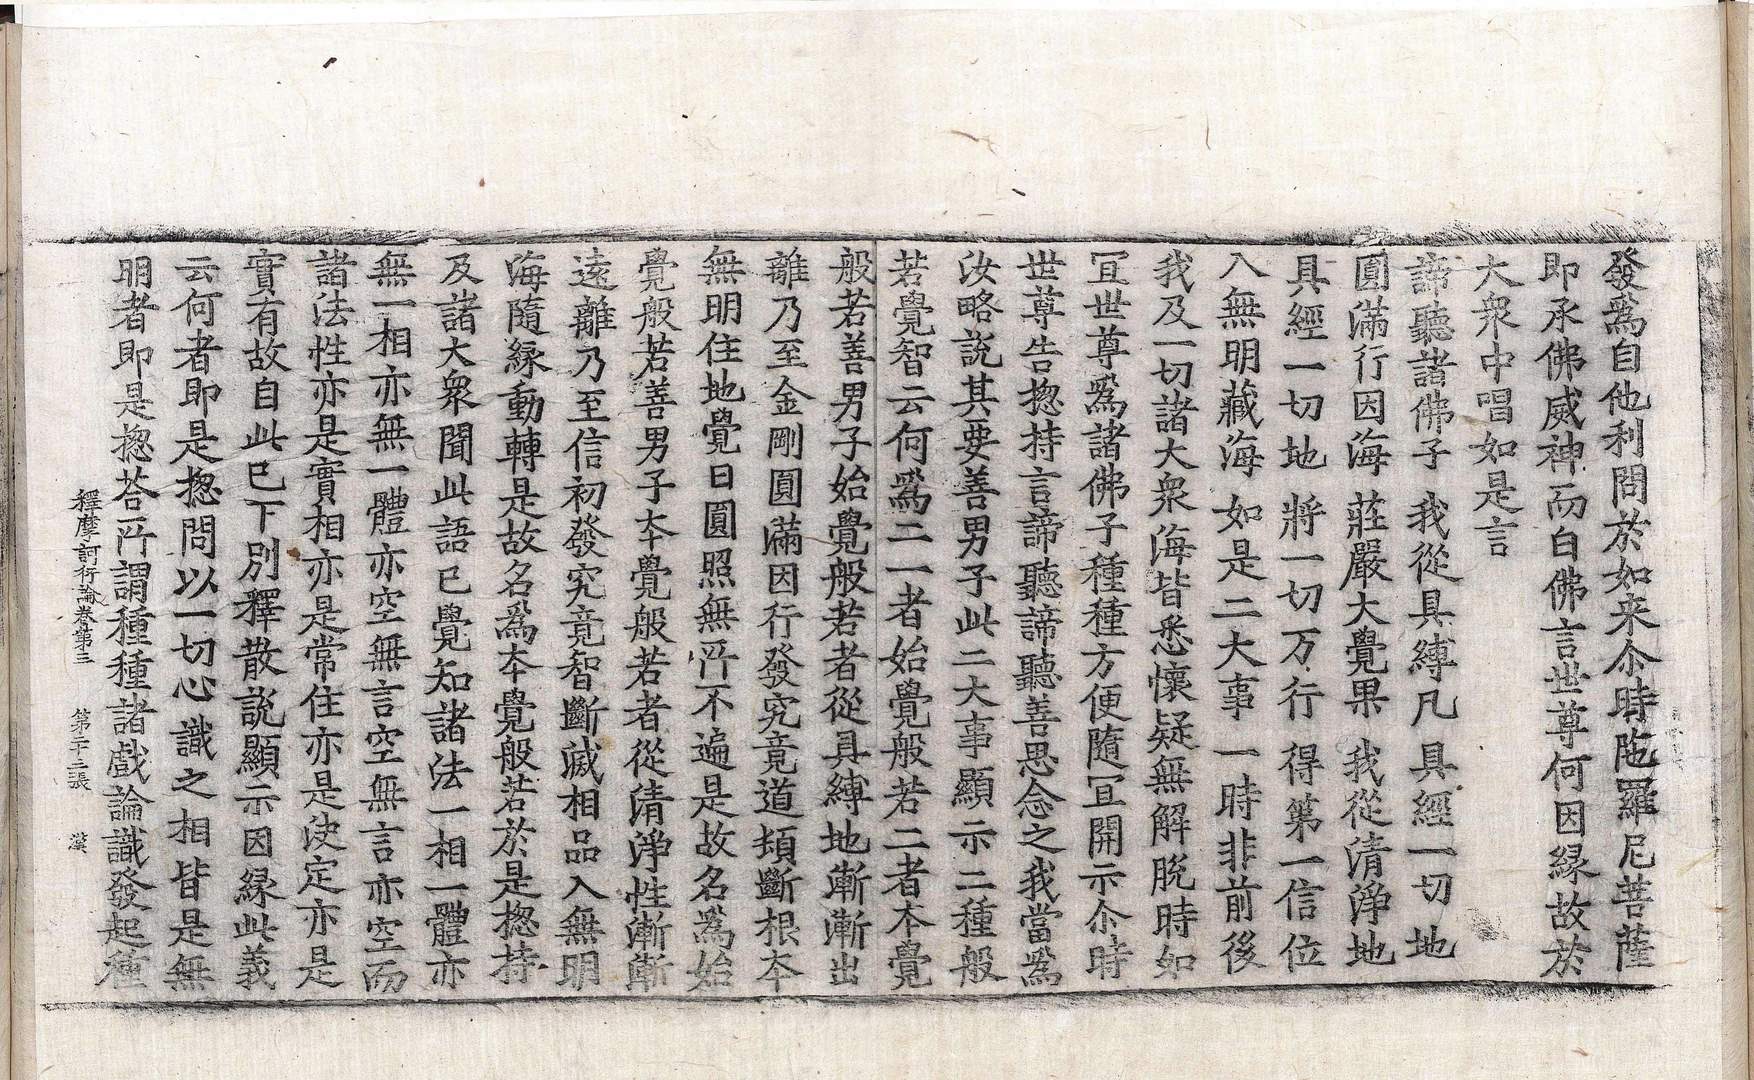 發爲自他利問於如来尒時陁羅尼菩薩
即承佛威神而白佛言世尊何因縁故於
大衆中唱如是言
諦聽諸佛子 我從具縛凡 具經一切地
圓滿行因海 莊嚴大覺果 我從清淨地
具經一切地 將一切万行 得第一信位
入無明藏海 如是二大事 一時非前後
我及一切諸大衆海皆悉懷疑無解脫時如
冝世尊爲諸佛子種種方便隨冝開示尒時
世尊告揔持言諦聽諦聽善思念之我當爲
汝略說其要善男子此二大事顯示二種般
若覺智云何爲二一者始覺般若二者夲覺
般若善男子始覺般若者從具縛地漸漸出
離乃至金剛圓滿因行發究竟道頓斷根夲
無明住地覺日圓照無所不遍是故名爲始
覺般若善男子夲覺般若者從清淨性漸漸
遠離乃至信初發究竟智斷滅相品入無明
海隨緣動轉是故名爲夲覺般若於是揔持
及諸大衆聞此語已覺知諸法一相一體亦
無一相亦無一體亦空無言空無言亦空而
諸法性亦是實相亦是常住亦是決定亦是
實有故自此已下別釋散說顯示因縁此義
云何者即是揔問以一切心識之相皆是無
明者即是揔荅所謂種種諸戲論識發起種
釋摩訶衍論卷第三 第二十二張 漢